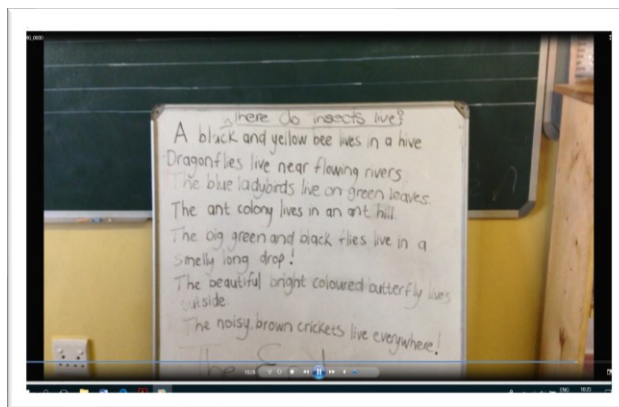 Where do insects live?
A black and yellow bee lives in a hive
Dragonflies live near flowing rivers.
The blue ladybirds live on green leaves.
The ant colony lives in an ant hill.
The big green and black flies live in a
smelly long drop!
The beautiful bright coloured butterfly lives
outside.
The noisy, brown crickets live everywhere!
The
ENG